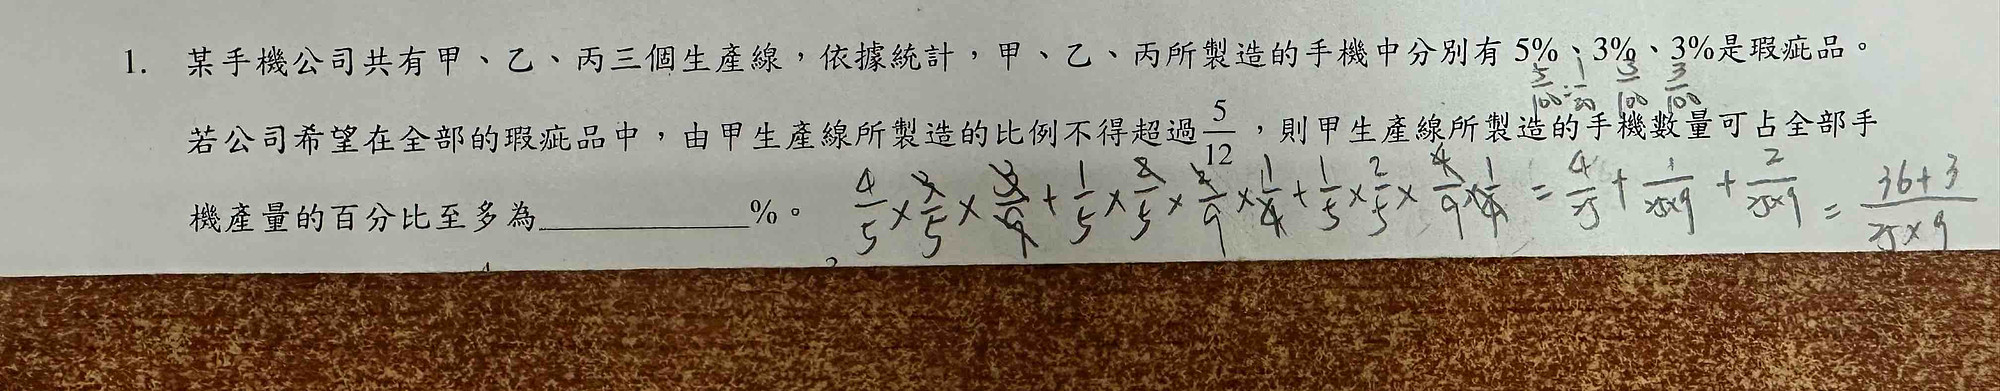 1. 某手機公司共有甲、乙、丙三個生產線，依據統計，甲、乙、丙所製造的手機中分別有 5%、3%、3%是瑕疵品。
5/100 = 1/20 3/100 3/100
若公司希望在全部的瑕疵品中，由甲生產線所製造的比例不得超過 5/12 ，則甲生產線所製造的手機數量可占全部手
機產量的百分比至多為__________%。
4/5 × 3/5 × + 1/5 × × × 1/4 + 1/5 × 2/5 × 4/9 × 1/4 = + + 2/25×9 = 36+3/25×9